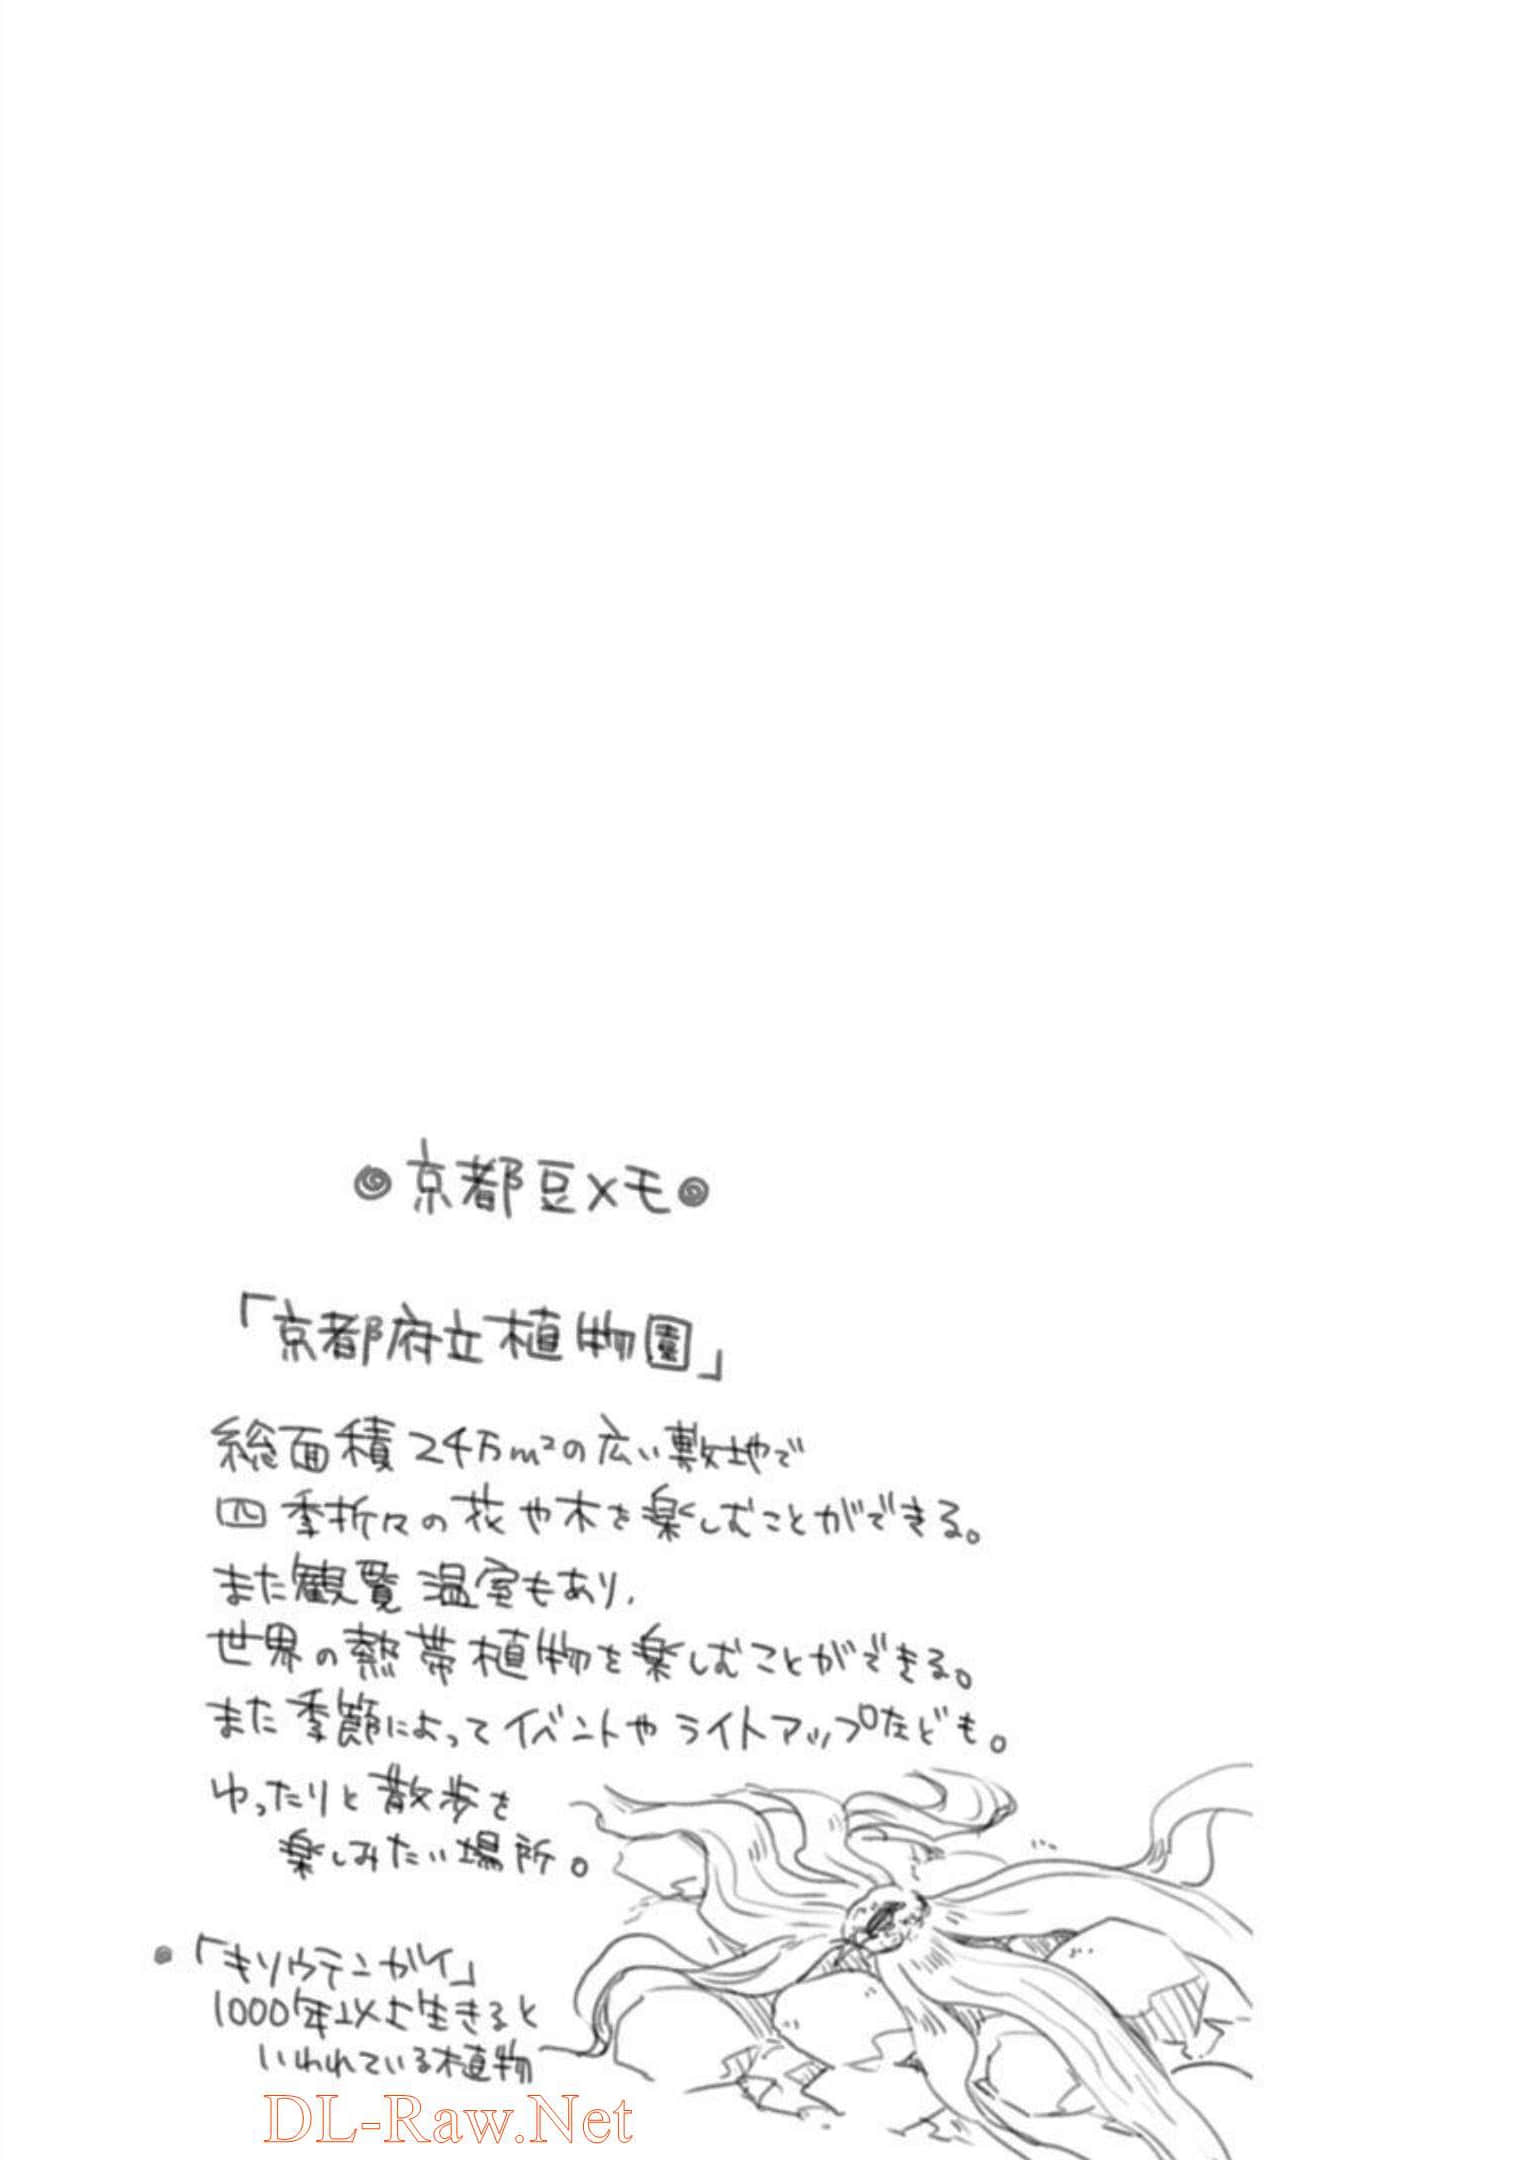 ◎京都豆メモ◎
「京都府立植物園」
総面積24万m²の広い敷地で
四季折々の花や木を楽しむことができる。
また観覧温室もあり、
世界の熱帯植物を楽しむことができる。
また季節によってイベントやライトアップなども。
ゆったりと散歩を
楽しみたい場所。
●「キソウテンガイ」
1000年以上生きると
いわれている植物
DL-Raw.Net